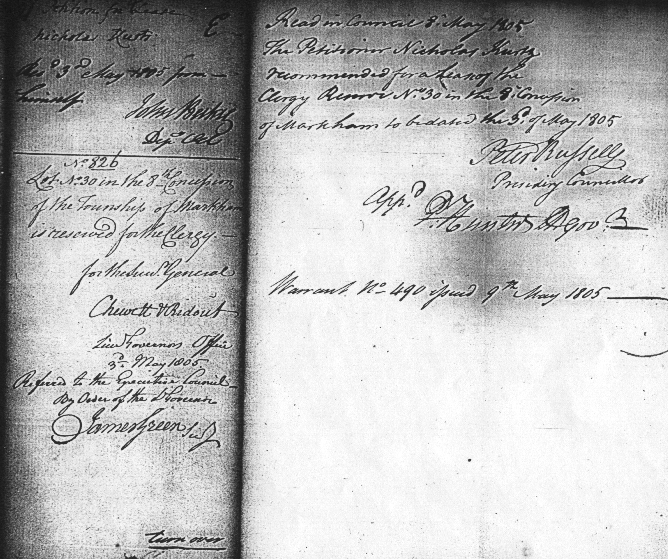 Petition for Lease
Nicholas
Rec'd 3d May 1805 from
himself
John
Dep. Clk
No. 826
Lot No 30 in the 8th Concession
of the Township of Markham
is reserved for the Clergy.
for the Surv. General
Chewett & Ridout
Lieu Governors Office
3d. May 1805
Referred to the Executive Council
By Order of the Lt Governor
James Green Sec
turn over
Read in Council 8' May 1805
The Petitioner Nicholas
recommended for a Lease of the
Clergy Reserve No. 30 in the 8' Concession
of Markham to be dated the 3d. of May 1805
Peter Russell
Presiding Councillor
App'd
P. Hunter Lt Gov.
Warrant No 490 issued 9th May 1805